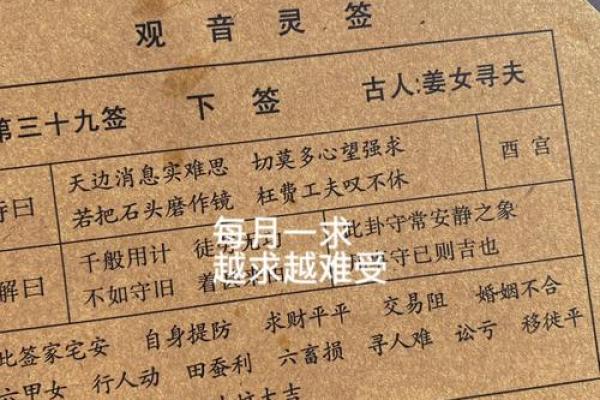 观音灵签
第三十九签 下签 古人:姜女寻夫
诗曰 天边消息实难思 切莫多心望强求 西宫
若把石头磨作镜 枉费工夫叹不休
解曰 千般用计 徒劳无功 此卦守常安静之象
不如守旧 守己则吉也
每月一求
越求越难受
此签家宅安 自身提防 求财平平 交易阻 婚姻不合
六甲女 行人动 田蚕利 六畜损 寻人难 讼亏 移徙平
坟大吉